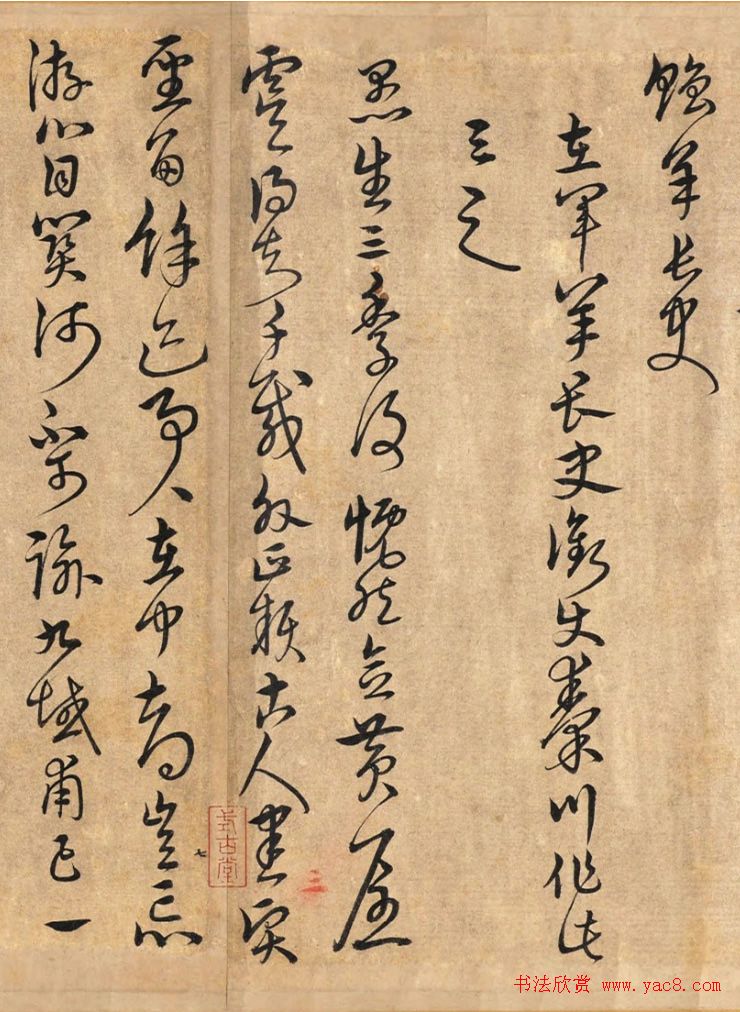 贈羊長史
左軍羊長史銜使秦川作此
与之
愚生三季後慨然念黄屋
虞得知千載外正賴古人書賢
聖留餘迹事〻在中都豈忘
游心目關河不可踰九域甫已一
式古堂
七
书法欣赏 www.yac8.com